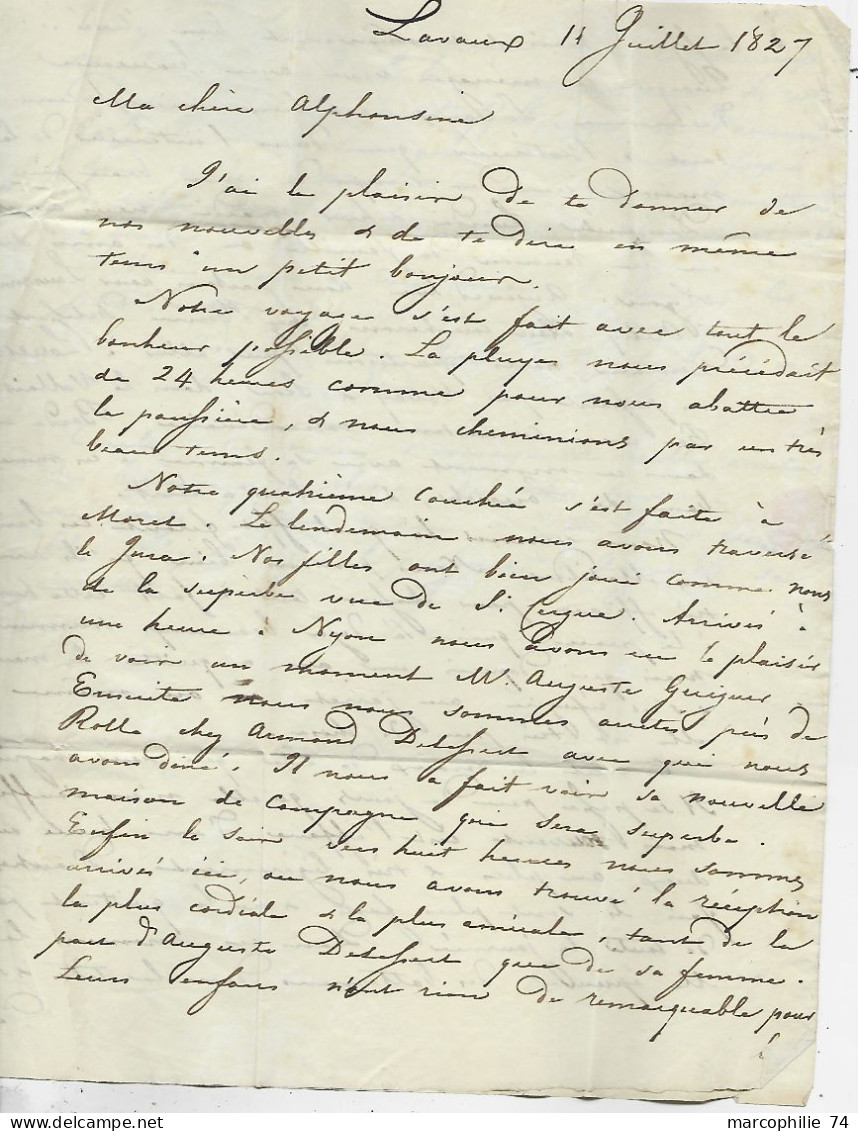 Lavaux 11 Juillet 1827
Ma chère Alphonsine
J'ai le plaisir de te donner de
nos nouvelles & de te dire en même
tems un petit bonjour.
Notre voyage s'est fait avec tout le
bonheur possible. La pluye nous précédait
de 24 heures comme pour nous abattre
la poussière, & nous cheminions par un très
beau tems.
Notre quatrième couchée s'est faite à
Morez. Le lendemain nous avons traversé
le Jura. Nos filles ont bien joui comme nous
de la superbe vue de St Cergue. Arrivés à
une heure à Nyon nous avons eu le plaisir
de voir un moment Mr. Auguste Guiguer,
Ensuite nous nous sommes arretés près de
Rolle chez Armand Delessert avec qui nous
avons diné. Il nous a fait voir sa nouvelle
maison de Campagne qui sera superbe.
Enfin le soir vers huit heures nous sommes
arrivés ici, ou nous avons trouvé la réception
la plus cordiale & la plus amicale, tant de la
part d'Auguste Delessert que de sa femme.
Leurs enfans n'ont rien de remarquable pour
marcophilie 74